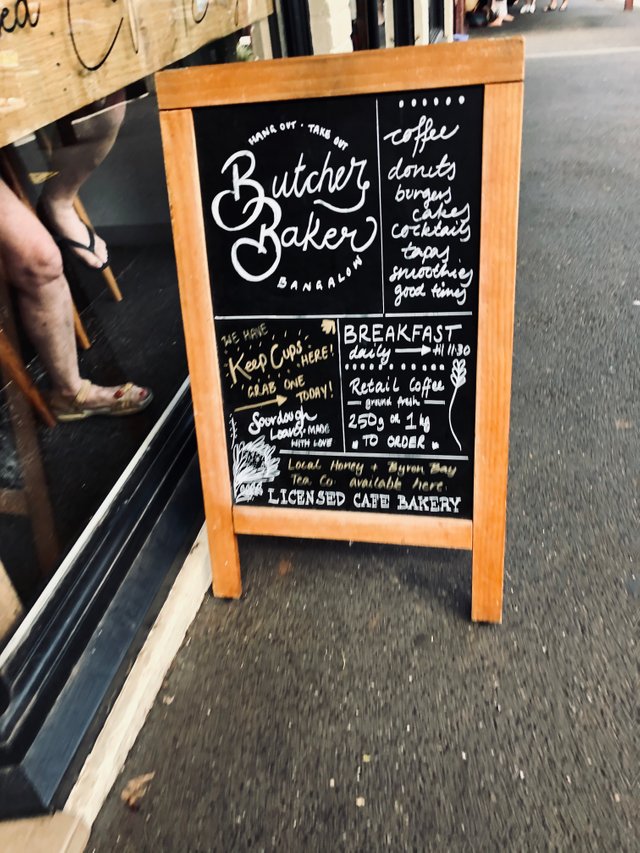 HANG OUT · TAKE OUT
Butcher
Baker
BANGALOW
coffee
donuts
burgers
cakes
cocktails
tapas
smoothies
good times
WE HAVE
Keep Cups
HERE!
GRAB ONE
TODAY!
Sourdough
Loaves MADE
WITH LOVE
BREAKFAST
daily → til 11:30
Retail Coffee
ground fresh
250g or 1kg
TO ORDER
Local Honey + Byron Bay
Tea Co. available here.
LICENSED CAFE BAKERY